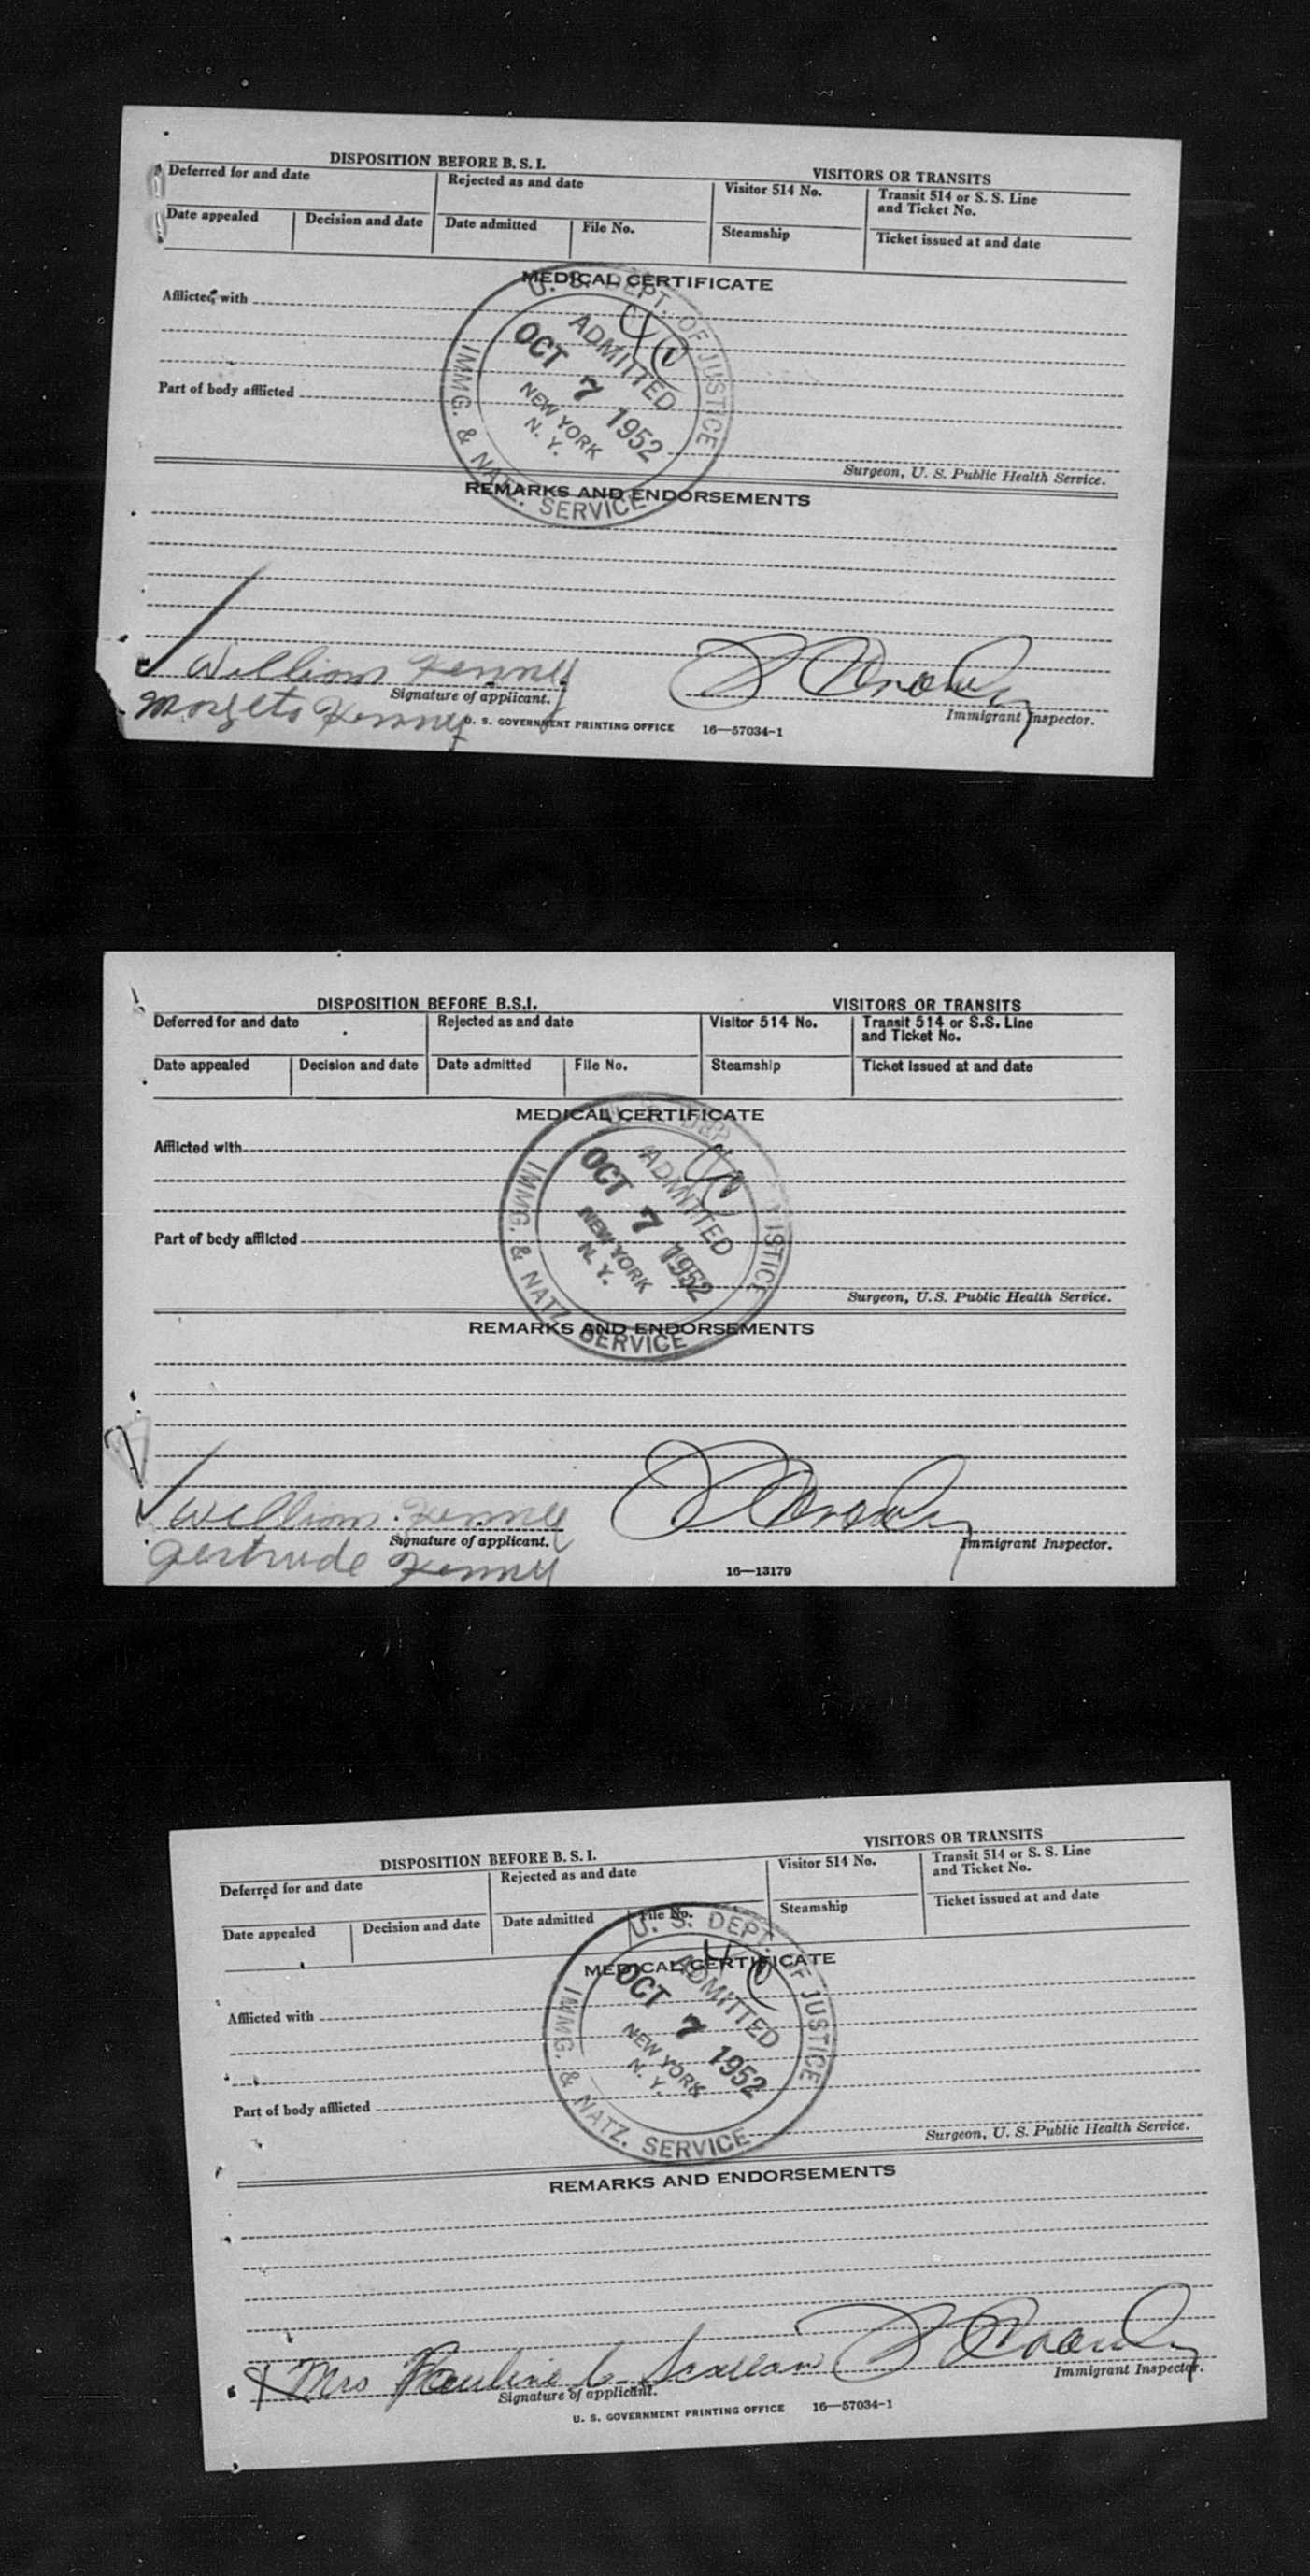 DISPOSITION BEFORE B. S. I. VISITORS OR TRANSITS
Deferred for and date Rejected as and date Visitor 514 No. Transit 514 or S. S. Line
and Ticket No.
Date appealed Decision and date Date admitted File No. Steamship Ticket issued at and date
MEDICAL CERTIFICATE
Afflicted with
Part of body afflicted
U. S. DEPT. OF JUSTICE
ADMITTED
OCT 7 1952
NEW YORK
N. Y.
IMMG. & NATZ. SERVICE
Surgeon, U. S. Public Health Service.
REMARKS AND ENDORSEMENTS
William Kenney
Signature of applicant. Immigrant Inspector.
Kenney
U. S. GOVERNMENT PRINTING OFFICE 16—57034-1
DISPOSITION BEFORE B.S.I. VISITORS OR TRANSITS
Deferred for and date Rejected as and date Visitor 514 No. Transit 514 or S.S. Line
and Ticket No.
Date appealed Decision and date Date admitted File No. Steamship Ticket issued at and date
MEDICAL CERTIFICATE
Afflicted with
Part of body afflicted
ADMITTED
OCT 7 1952
NEW YORK
N. Y.
IMMG. & NATZ. SERVICE
Surgeon, U.S. Public Health Service.
REMARKS AND ENDORSEMENTS
William Kenney
Signature of applicant. Immigrant Inspector.
Gertrude Kenney
16—13179
DISPOSITION BEFORE B. S. I. VISITORS OR TRANSITS
Deferred for and date Rejected as and date Visitor 514 No. Transit 514 or S. S. Line
and Ticket No.
Date appealed Decision and date Date admitted File No. Steamship Ticket issued at and date
MEDICAL CERTIFICATE
Afflicted with
Part of body afflicted
U. S. DEPT. OF JUSTICE
ADMITTED
OCT 7 1952
NEW YORK
N. Y.
IMMG. & NATZ. SERVICE
Surgeon, U. S. Public Health Service.
REMARKS AND ENDORSEMENTS
Mrs Pauline C. Scallan
Signature of applicant. Immigrant Inspector.
U. S. GOVERNMENT PRINTING OFFICE 16—57034-1